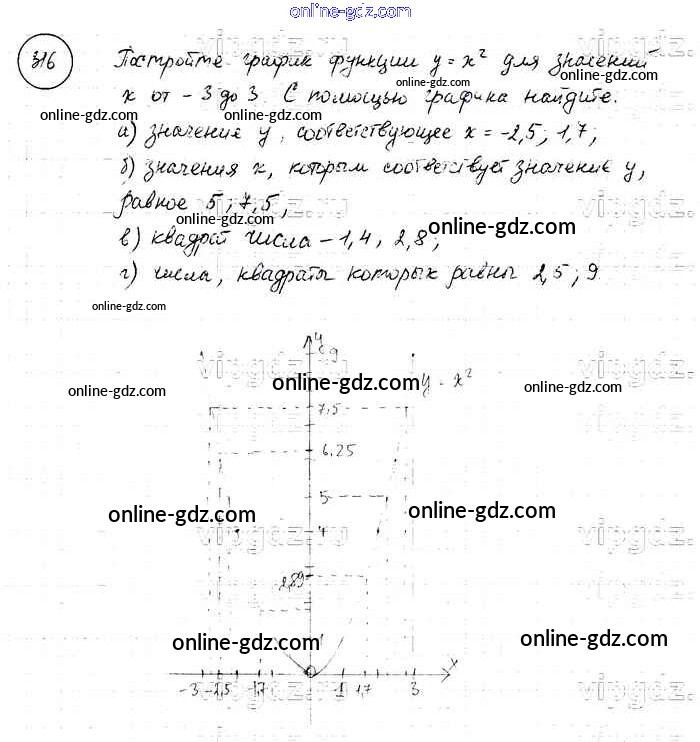 online-gdz.com
316 Постройте график функции y = x² для значений
online-gdz.com
x от - 3 до 3. С помощью графика найдите:
online-gdz.com
а) значение y, соответствующее x = -2,5; 1,7;
б) значения x, которым соответствует значение y,
равное 5; 7,5;
online-gdz.com
online-gdz.com
в) квадрат числа -1,4; 2,8;
г) числа, квадраты которых равны 2,5; 9
online-gdz.com
y
9
online-gdz.com
y = x²
online-gdz.com
online-gdz.com
7,5
6,25
5
online-gdz.com
online-gdz.com
4
2,89
online-gdz.com
online-gdz.com
x
-3 -2,5 -1,7 0 1 1,7 3
vipgdz.ru